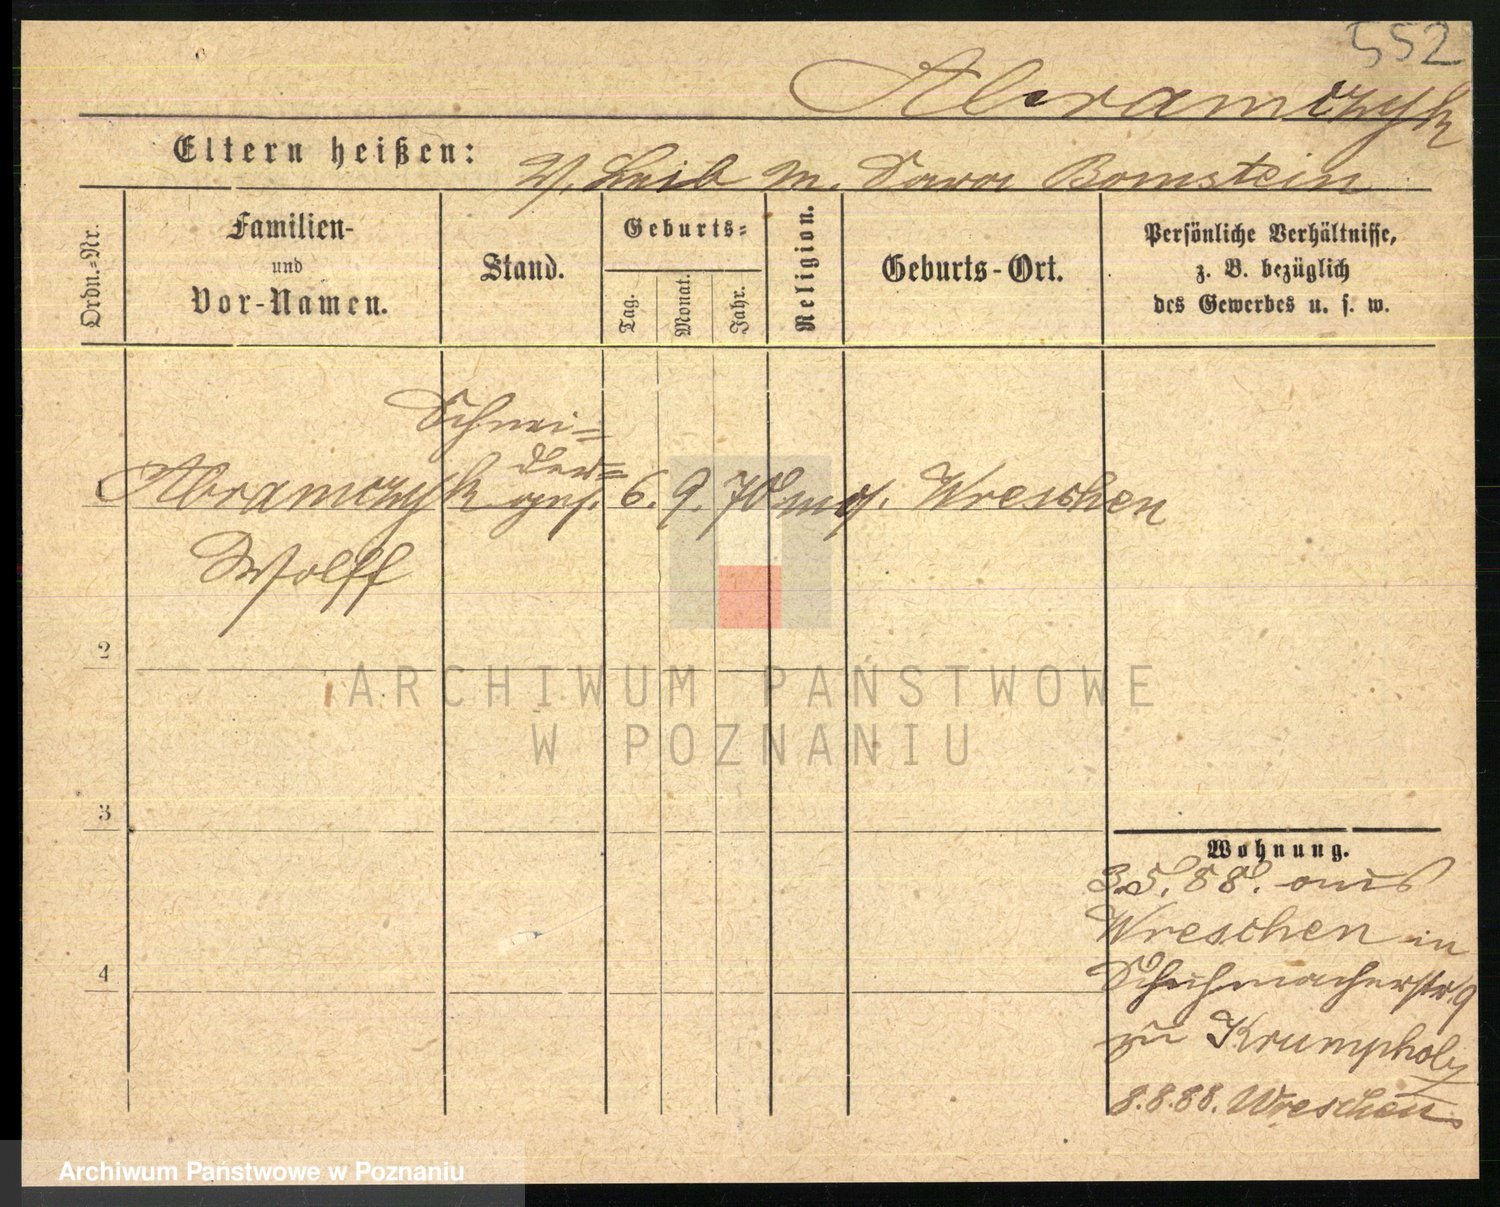 552
Abramczyk
Eltern heißen: V. Leib M. Sara Bornstein
Ordn.-Nr.
Familien-
und
Vor-Namen.
Stand.
Geburts-
Tag.
Monat.
Jahr.
Religion.
Geburts-Ort.
Persönliche Verhältnisse,
z. B. bezüglich
des Gewerbes u. s. w.
Schnei-
der-
Abramczyk ges. 6. 9. 70 mos. Wreschen
Wolff
2
ARCHIWUM PAŃSTWOWE
W POZNANIU
3
Wohnung.
3.5.88. aus
Wreschen in
Schuhmacherstr. 9
zu Krumpholz
4
8.8.88. Wreschen
Archiwum Państwowe w Poznaniu